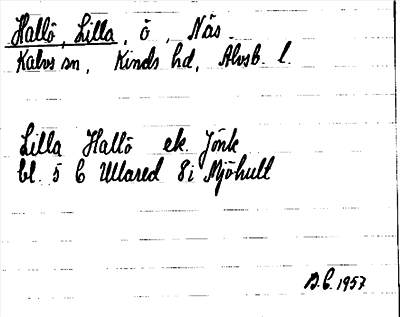 Hallö, Lilla, ö, Näs.
Kalvs sn, Kinds hd, Älvsb. l.
Lilla Hallö ek. Jönk
bl. 5 C Ullared 8i Mjöhult
B.C. 1957